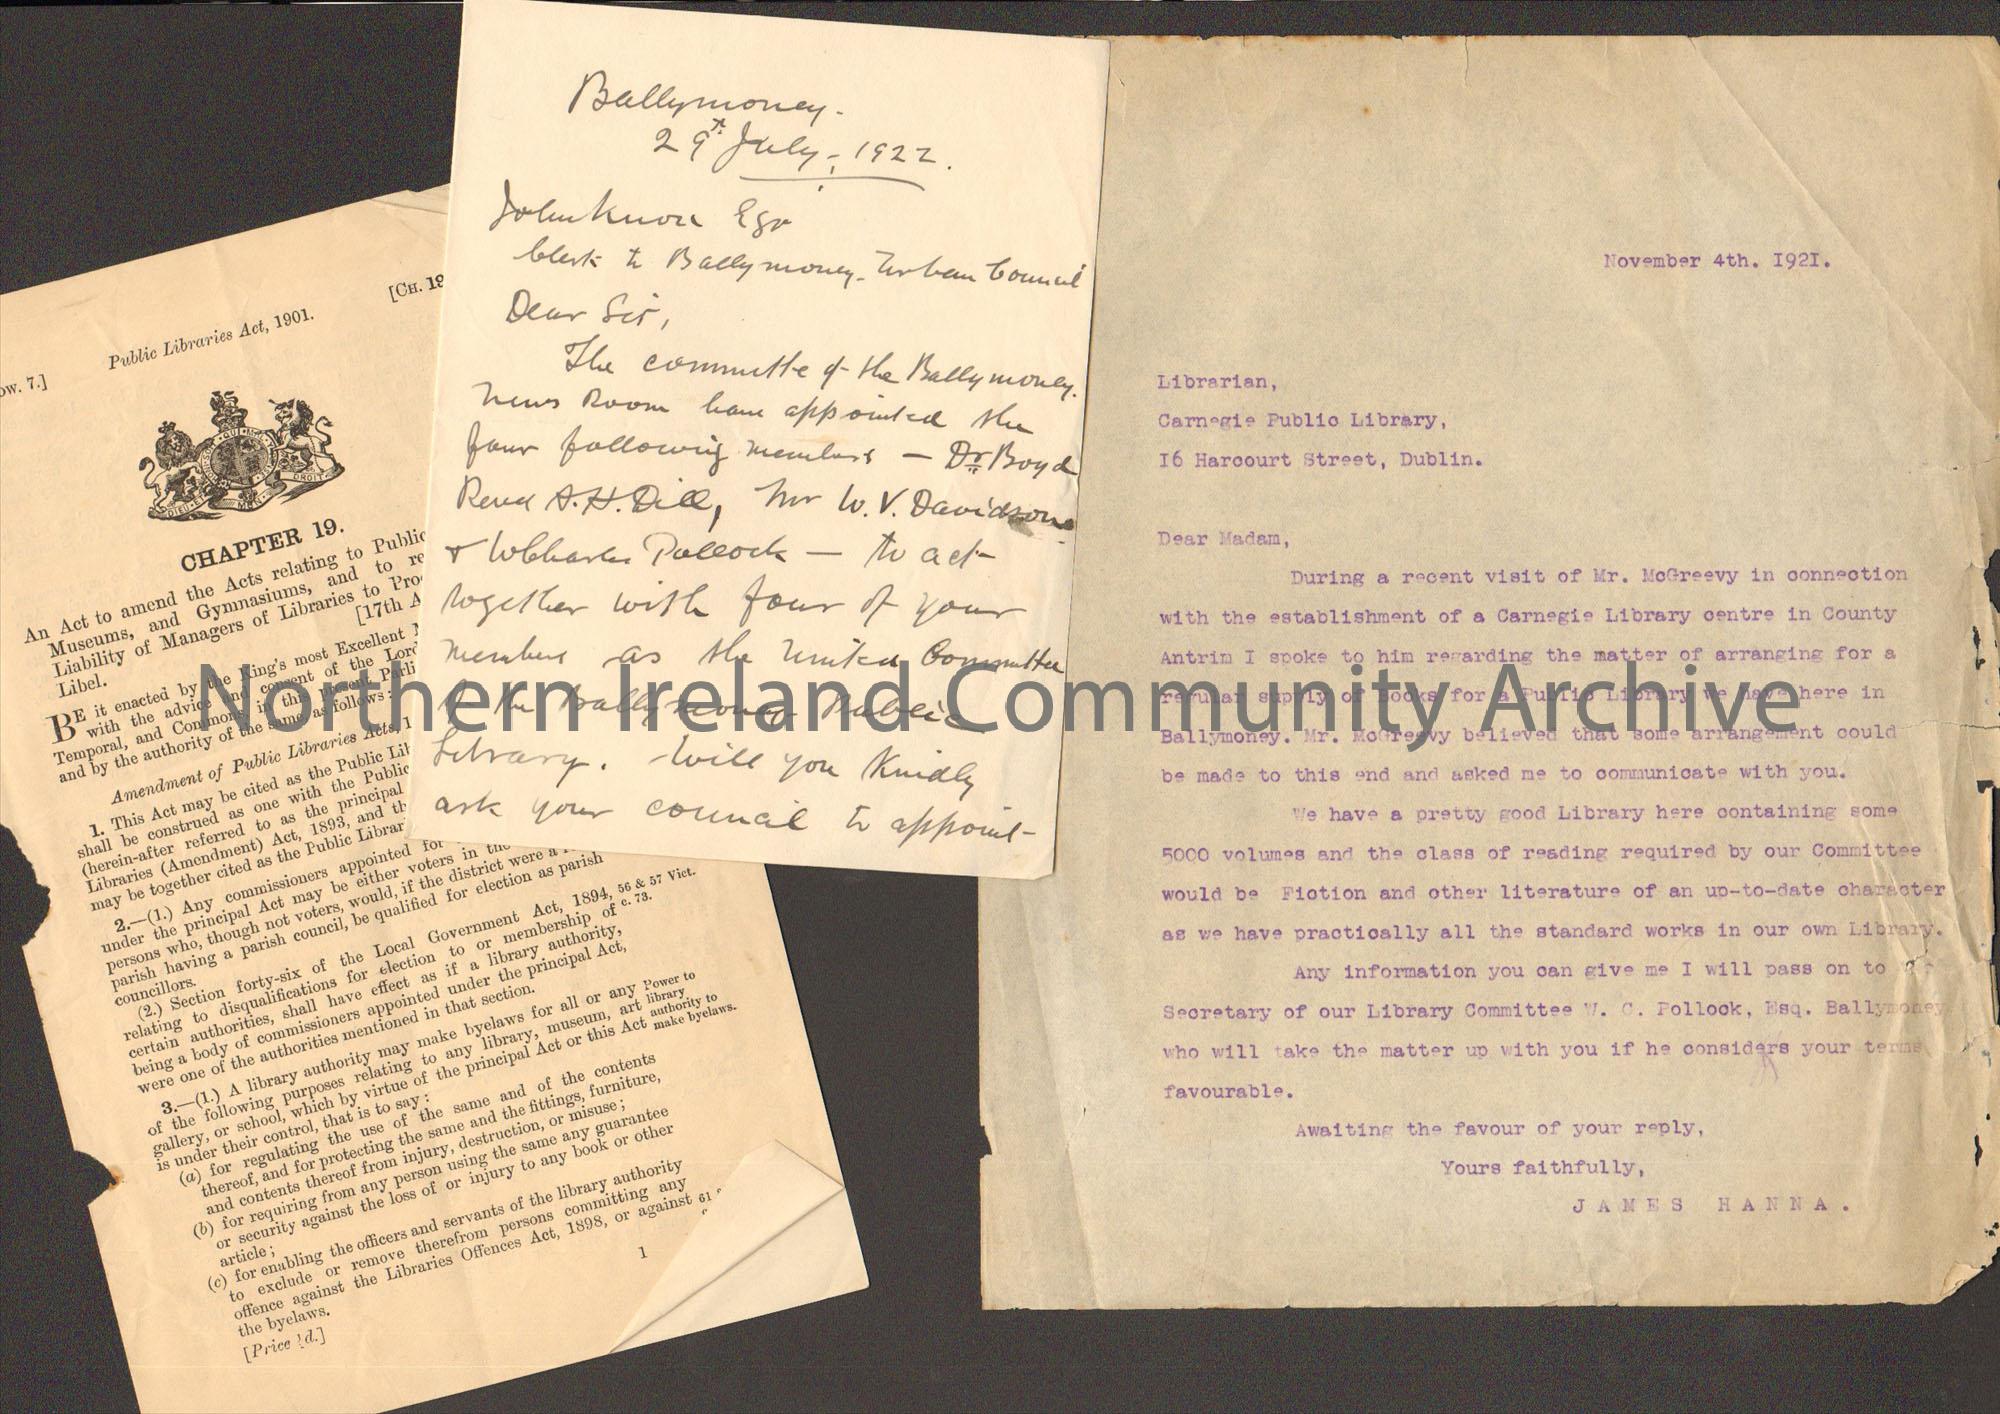 Public Libraries Act, 1901.
[CH. 19
ow. 7.]
CHAPTER 19.
An Act to amend the Acts relating to Public
Museums, and Gymnasiums, and to re
Liability of Managers of Libraries to Pro
Libel.
[17th A
BE it enacted by the King's most Excellent
with the advice and consent of the Lor
Temporal, and Commons, in this present Parli
and by the authority of the same, as follows:
Amendment of Public Libraries Acts, 1
1. This Act may be cited as the Public Lib
shall be construed as one with the Public
(herein-after referred to as the principal
Libraries (Amendment) Act, 1893, and th
may be together cited as the Public Librar
2.—(1.) Any commissioners appointed for
under the principal Act may be either voters in the
persons who, though not voters, would, if the district were a
parish having a parish council, be qualified for election as parish
councillors.
(2.) Section forty-six of the Local Government Act, 1894, 56 & 57 Vict.
relating to disqualifications for election to or membership of c. 73.
certain authorities, shall have effect as if a library authority,
being a body of commissioners appointed under the principal Act,
were one of the authorities mentioned in that section.
3.—(1.) A library authority may make byelaws for all or any Power to
of the following purposes relating to any library, museum, art library
gallery, or school, which by virtue of the principal Act or this Act authority to
is under their control, that is to say: make byelaws.
(a) for regulating the use of the same and of the contents
thereof, and for protecting the same and the fittings, furniture,
and contents thereof from injury, destruction, or misuse;
(b) for requiring from any person using the same any guarantee
or security against the loss of or injury to any book or other
article;
(c) for enabling the officers and servants of the library authority
to exclude or remove therefrom persons committing any
offence against the Libraries Offences Act, 1898, or against 61
the byelaws.
[Price d.]
1
Ballymoney.
29th July, 1922.
John Knox Esqr
Clerk to Ballymoney Urban Council
Dear Sir,
The committe of the Ballymoney
News Room have appointed the
four following members — Dr Boyd
Revd A.H. Dill, Mr W.V. Davidson
& WCharles Pollock — to act
together with four of your
members as the United Committee
of the Ballymoney Public
Library. Will you Kindly
ask your council to appoint
November 4th. I92I.
Librarian,
Carnegie Public Library,
I6 Harcourt Street, Dublin.
Dear Madam,
During a recent visit of Mr. McGreevy in connection
with the establishment of a Carnegie Library centre in County
Antrim I spoke to him regarding the matter of arranging for a
regular supply of books for a Public Library we have here in
Ballymoney. Mr. McGreevy believed that some arrangement could
be made to this end and asked me to communicate with you.
We have a pretty good Library here containing some
5000 volumes and the class of reading required by our Committee
would be Fiction and other literature of an up-to-date character
as we have practically all the standard works in our own Library.
Any information you can give me I will pass on to
Secretary of our Library Committee W. C. Pollock, Esq. Ballymoney
who will take the matter up with you if he considers your terms
favourable.
Awaiting the favour of your reply,
Yours faithfully,
JAMES HANNA.
Northern Ireland Community Archive